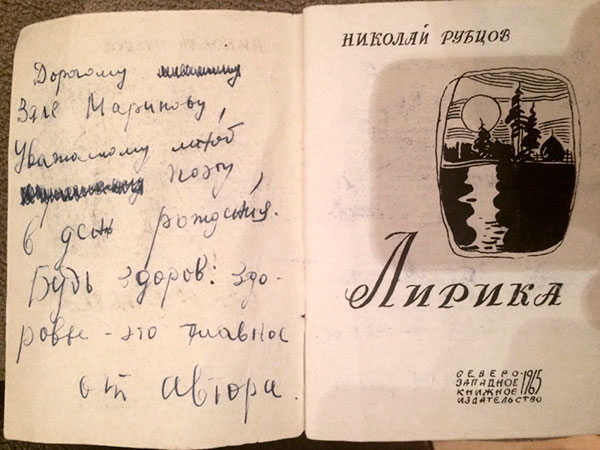 Дорогому
Эдле Маринову,
Уважаемому мной
поэту,
в день рождения.
Будь здоров: здо-
ровье - это главное
от автора.
НИКОЛАЙ РУБЦОВ
ЛИРИКА
СЕВЕРО-
ЗАПАДНОЕ
КНИЖНОЕ
ИЗДАТЕЛЬСТВО
1965